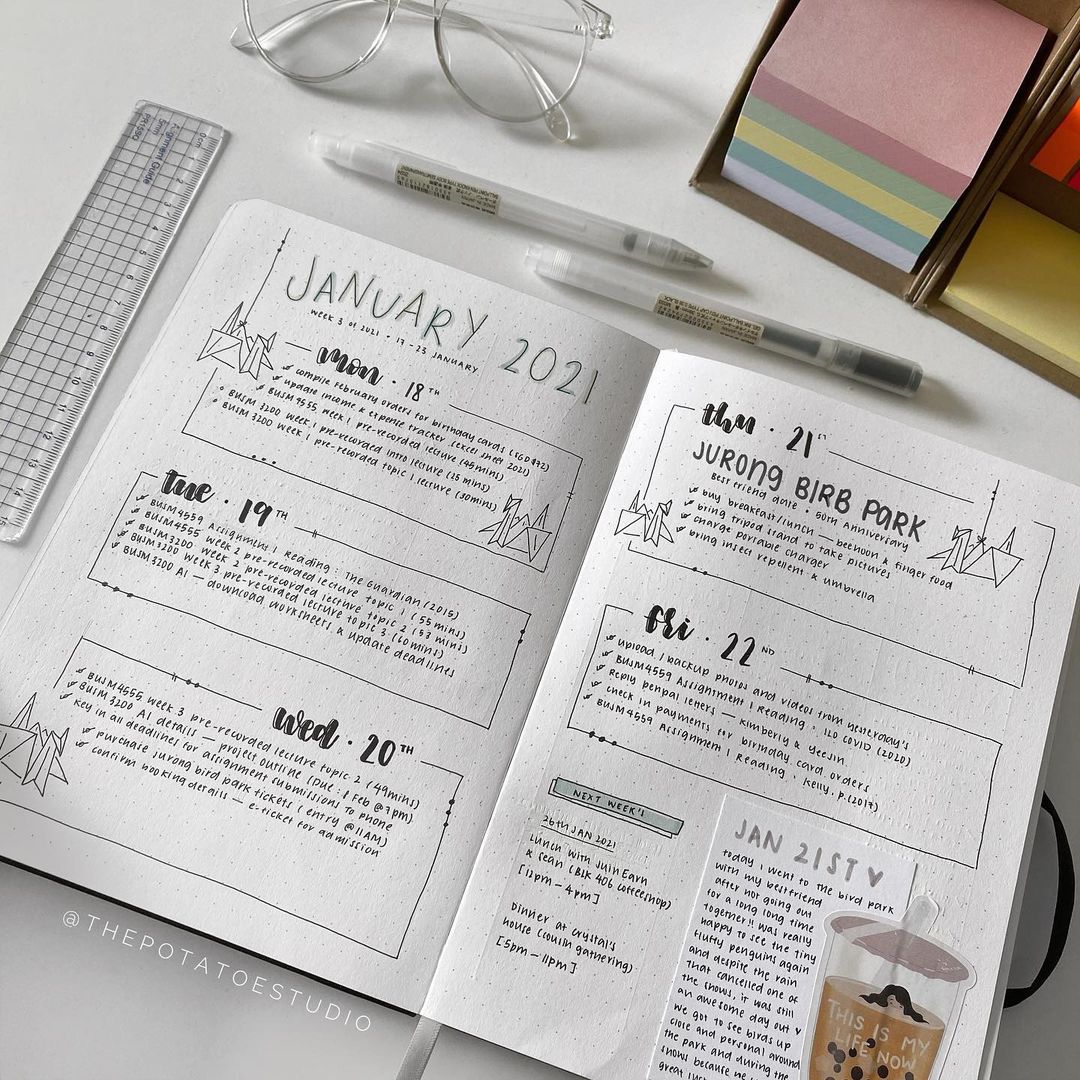 JANUARY 2021
WEEK 3 OF 2021 • 17 - 23 JANUARY
mon • 18TH
compile february orders for birthday cards (SGD$92)
update income & expense tracker (excel sheet 2021)
BUSM 4555 week 1 pre-recorded lecture (45mins)
BUSM 3200 week 1 pre-recorded intro lecture (25 mins)
BUSM 3200 week 1 pre-recorded topic 1 lecture (30mins)
tue • 19TH
BUSM4559 Assignment 1 Reading: The Guardian (2015)
BUSM4555 week 2 pre-recorded lecture topic 1 (55 mins)
BUSM3200 week 2 pre-recorded lecture topic 2 (53 mins)
BUSM3200 week 3 pre-recorded lecture topic 3 (60mins)
BUSM3200 A1 — download worksheets & update deadlines
wed • 20TH
BUSM4555 week 3 pre-recorded lecture topic 2 (49mins)
BUSM 3200 A1 details — project outline (Due: 8 Feb @7pm)
key in all deadlines for assignment submissions to phone
purchase jurong bird park tickets (entry @11AM)
confirm booking details — e-ticket for admission
thu • 21ST
JURONG BIRB PARK
Best friend date • 50th Anniversary
buy breakfast/lunch — beehoon & finger food
bring tripod stand to take pictures
charge portable charger
bring insect repellent & umbrella
fri • 22ND
upload / backup photos and videos from yesterday's
BUSM4559 Assignment 1 Reading: ILO COVID (2020)
Reply penpal letters — kimberly & yeejin
check in payments for birthday card orders
BUSM4559 Assignment 1 Reading: kelly, p. (2017)
NEXT WEEK'S
26TH JAN 2021
Lunch with Juin Earn
& Sean (BLK 406 coffeeshop)
[12pm - 4pm]
Dinner at crystal's
house (cousin gathering)
[5pm - 11pm]
JAN 21ST
today i went to the bird park
with my bestfriend
after not going out
for a long long time
together!! was really
happy to see the tiny
fluffy penguins again
and despite the rain
that cancelled one of
the shows, it was still
an awesome day out
We got to see birds up
close and personal around
the park and during the
shows because we
great
THIS IS MY
LIFE NOW
@THEPOTATOESTUDIO
Alignment Guide
5mm
0cm 1 2 3 4 5 6 7 8 9 10 11 12 13 14